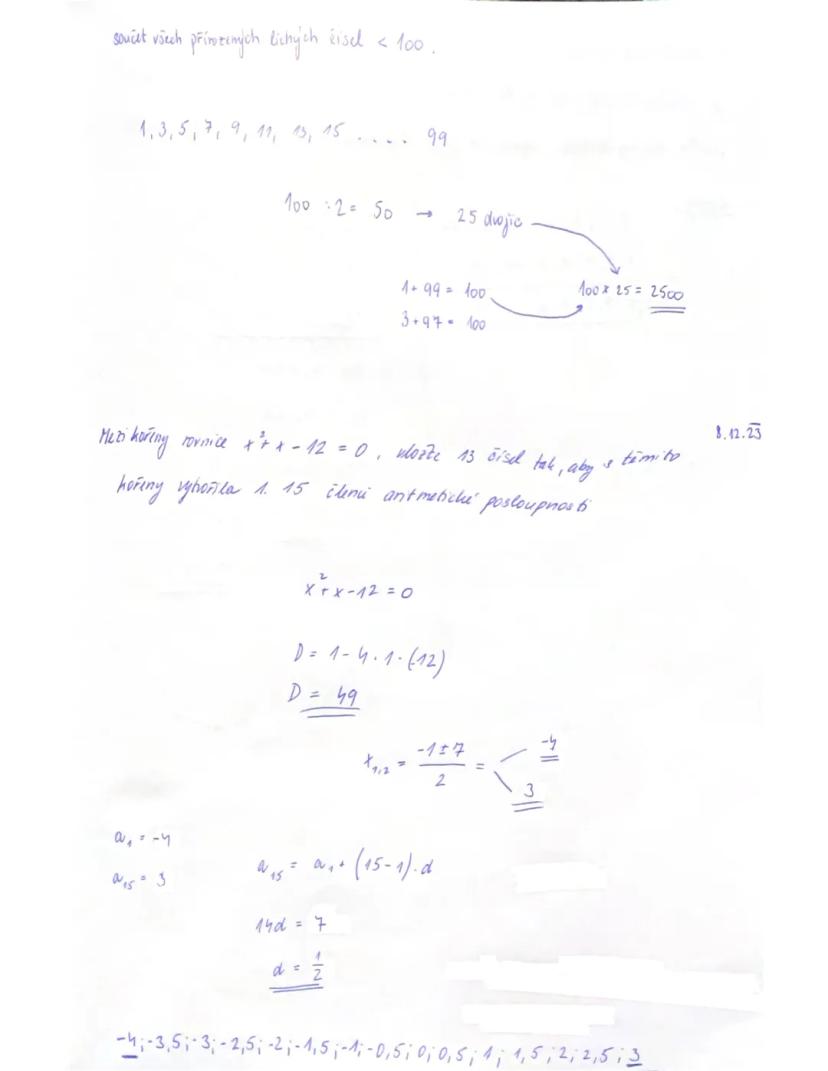 součet všech přirozených lichých čísel < 100.
1, 3, 5, 7, 9, 11, 13, 15 ..... 99
100 : 2 = 50 → 25 dvojic
1 + 99 = 100
100 x 25 = 2500
3 + 97 = 100
8.12.23
Mezi kořeny rovnice x² + x - 12 = 0, vložte 13 čísel tak, aby s těmito
kořeny vytvořila 1. 15 členů aritmetické posloupnosti
x² + x - 12 = 0
D = 1 - 4 . 1 . (-12)
D = 49
x₁,₂ = (-1 ± 7) / 2 = -4
3
a₁ = -4
a₁₅ = 3
a₁₅ = a₁ + (15-1) . d
14d = 7
d = 1/2
-4; -3,5; -3; -2,5; -2; -1,5; -1; -0,5; 0; 0,5; 1; 1,5; 2; 2,5; 3